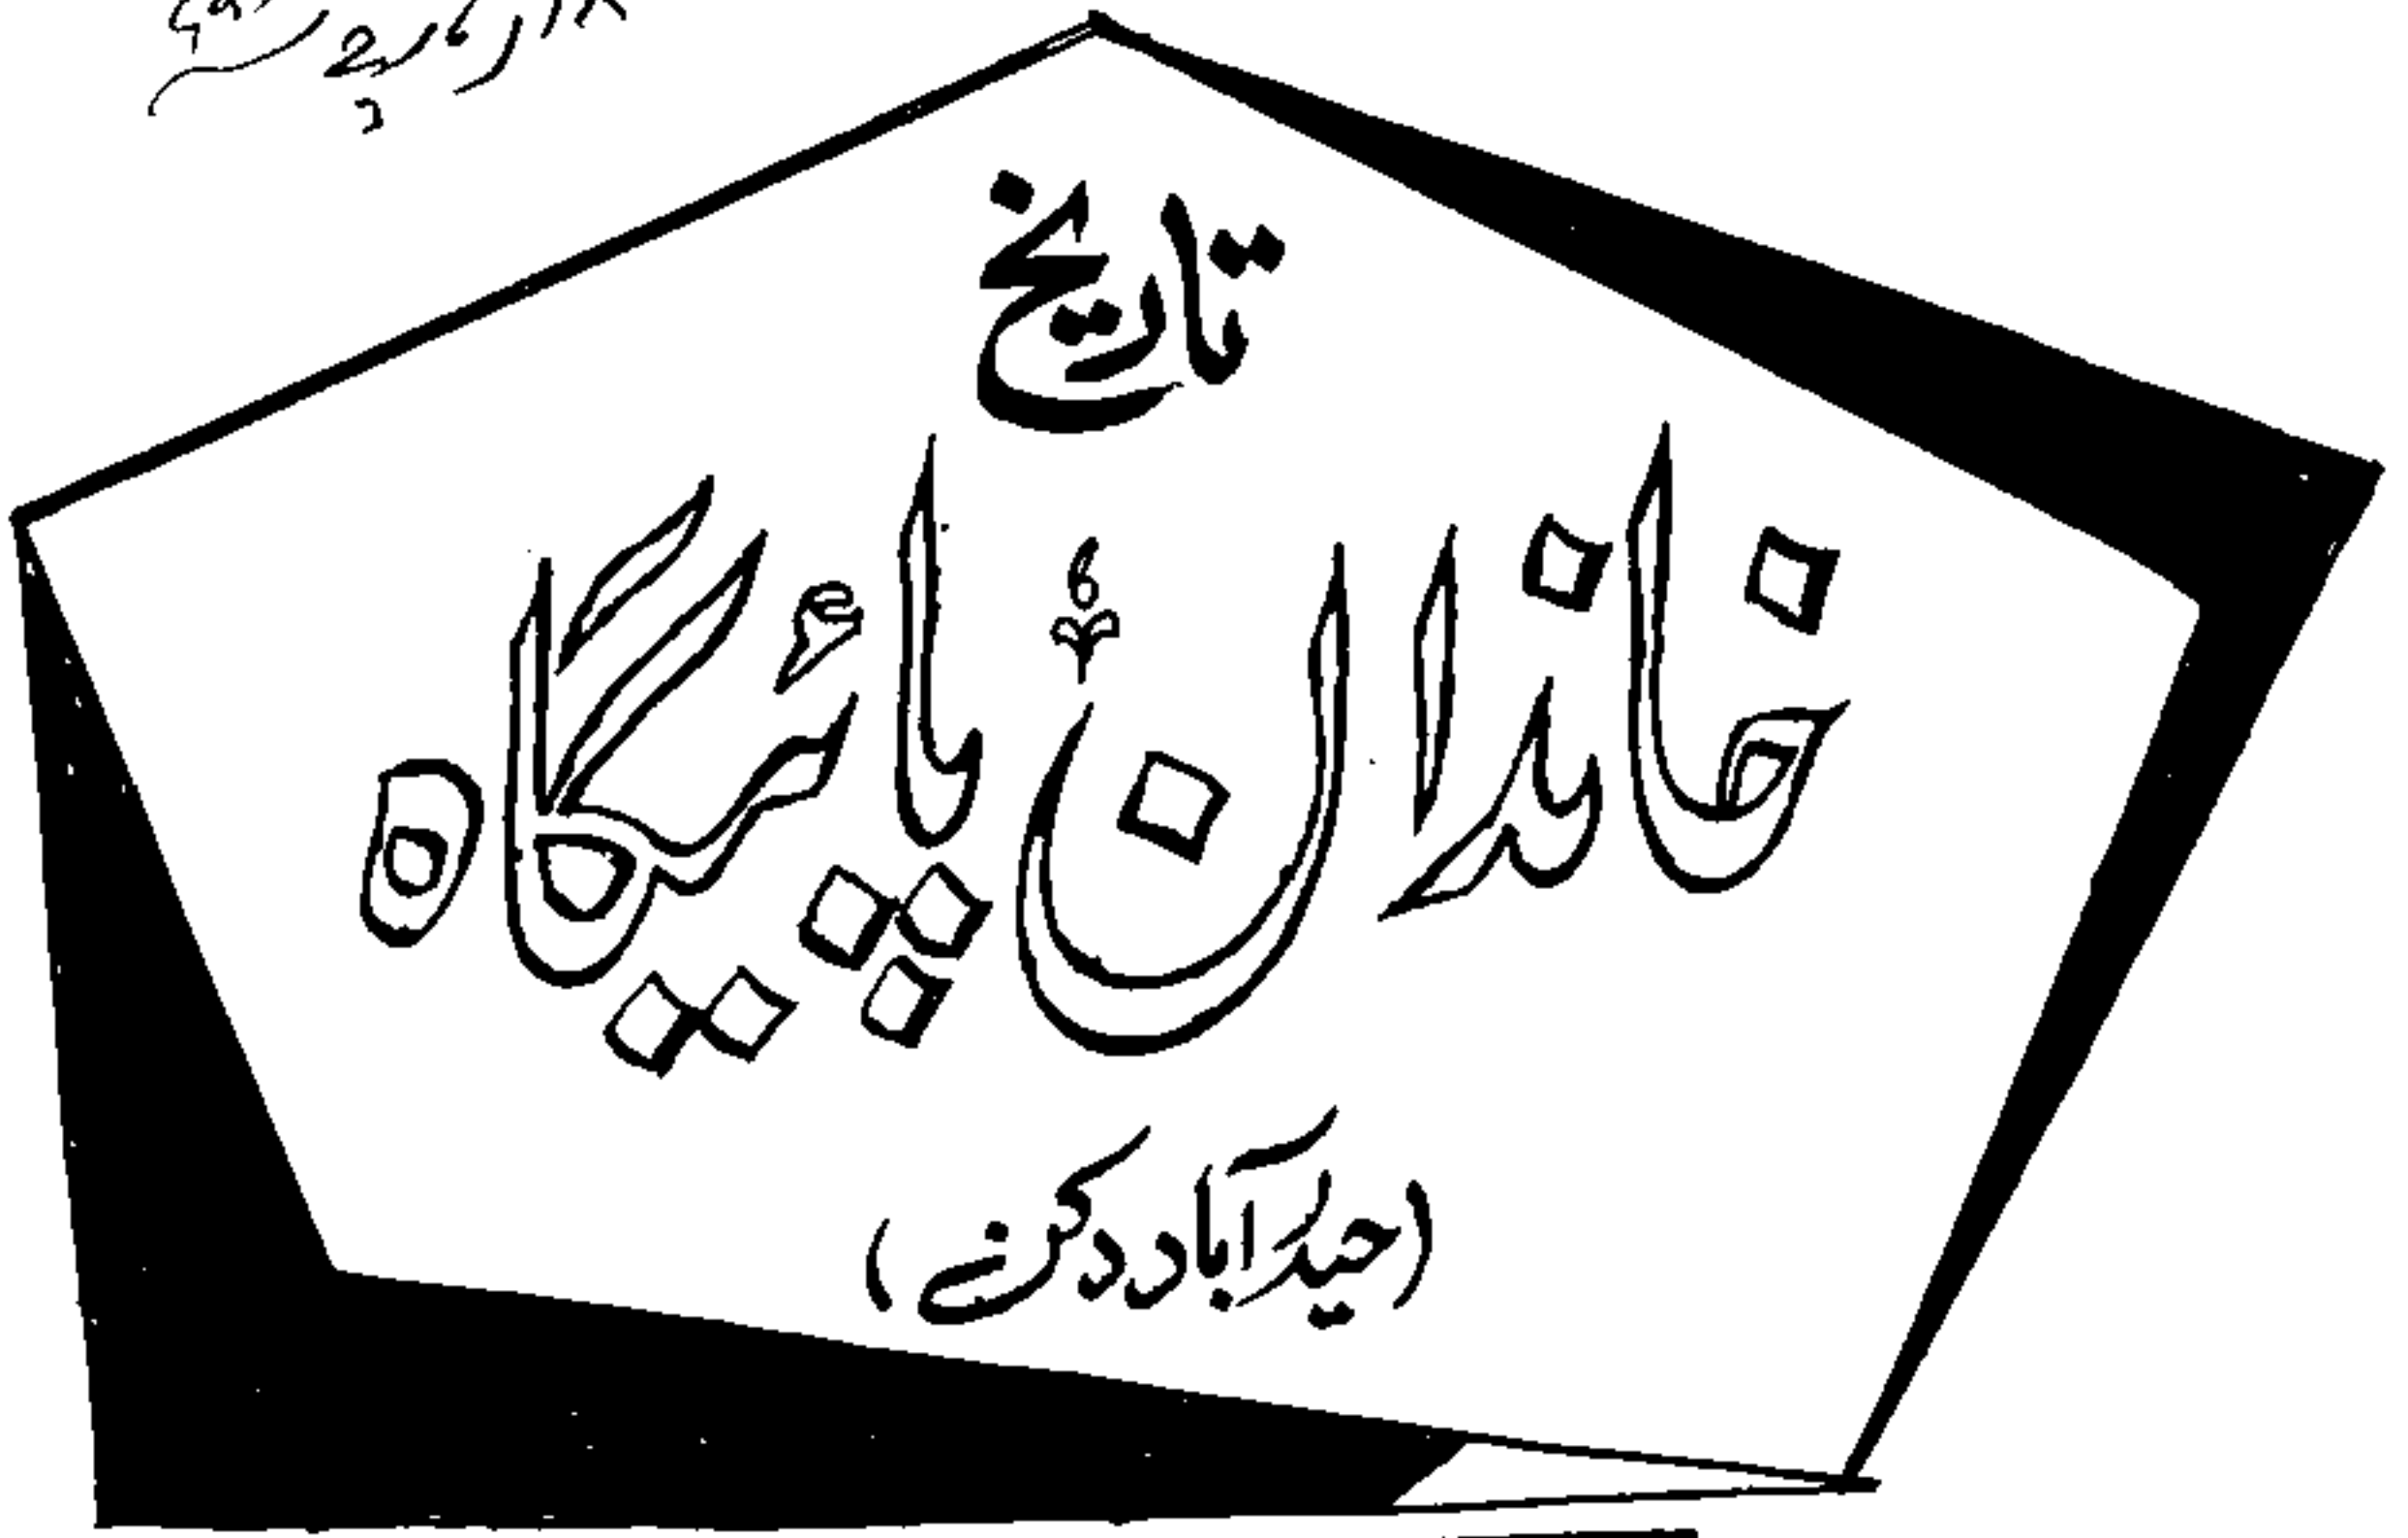 تاریخ
خاندانِ پائیگاہ
(حیدرآباد دکن)